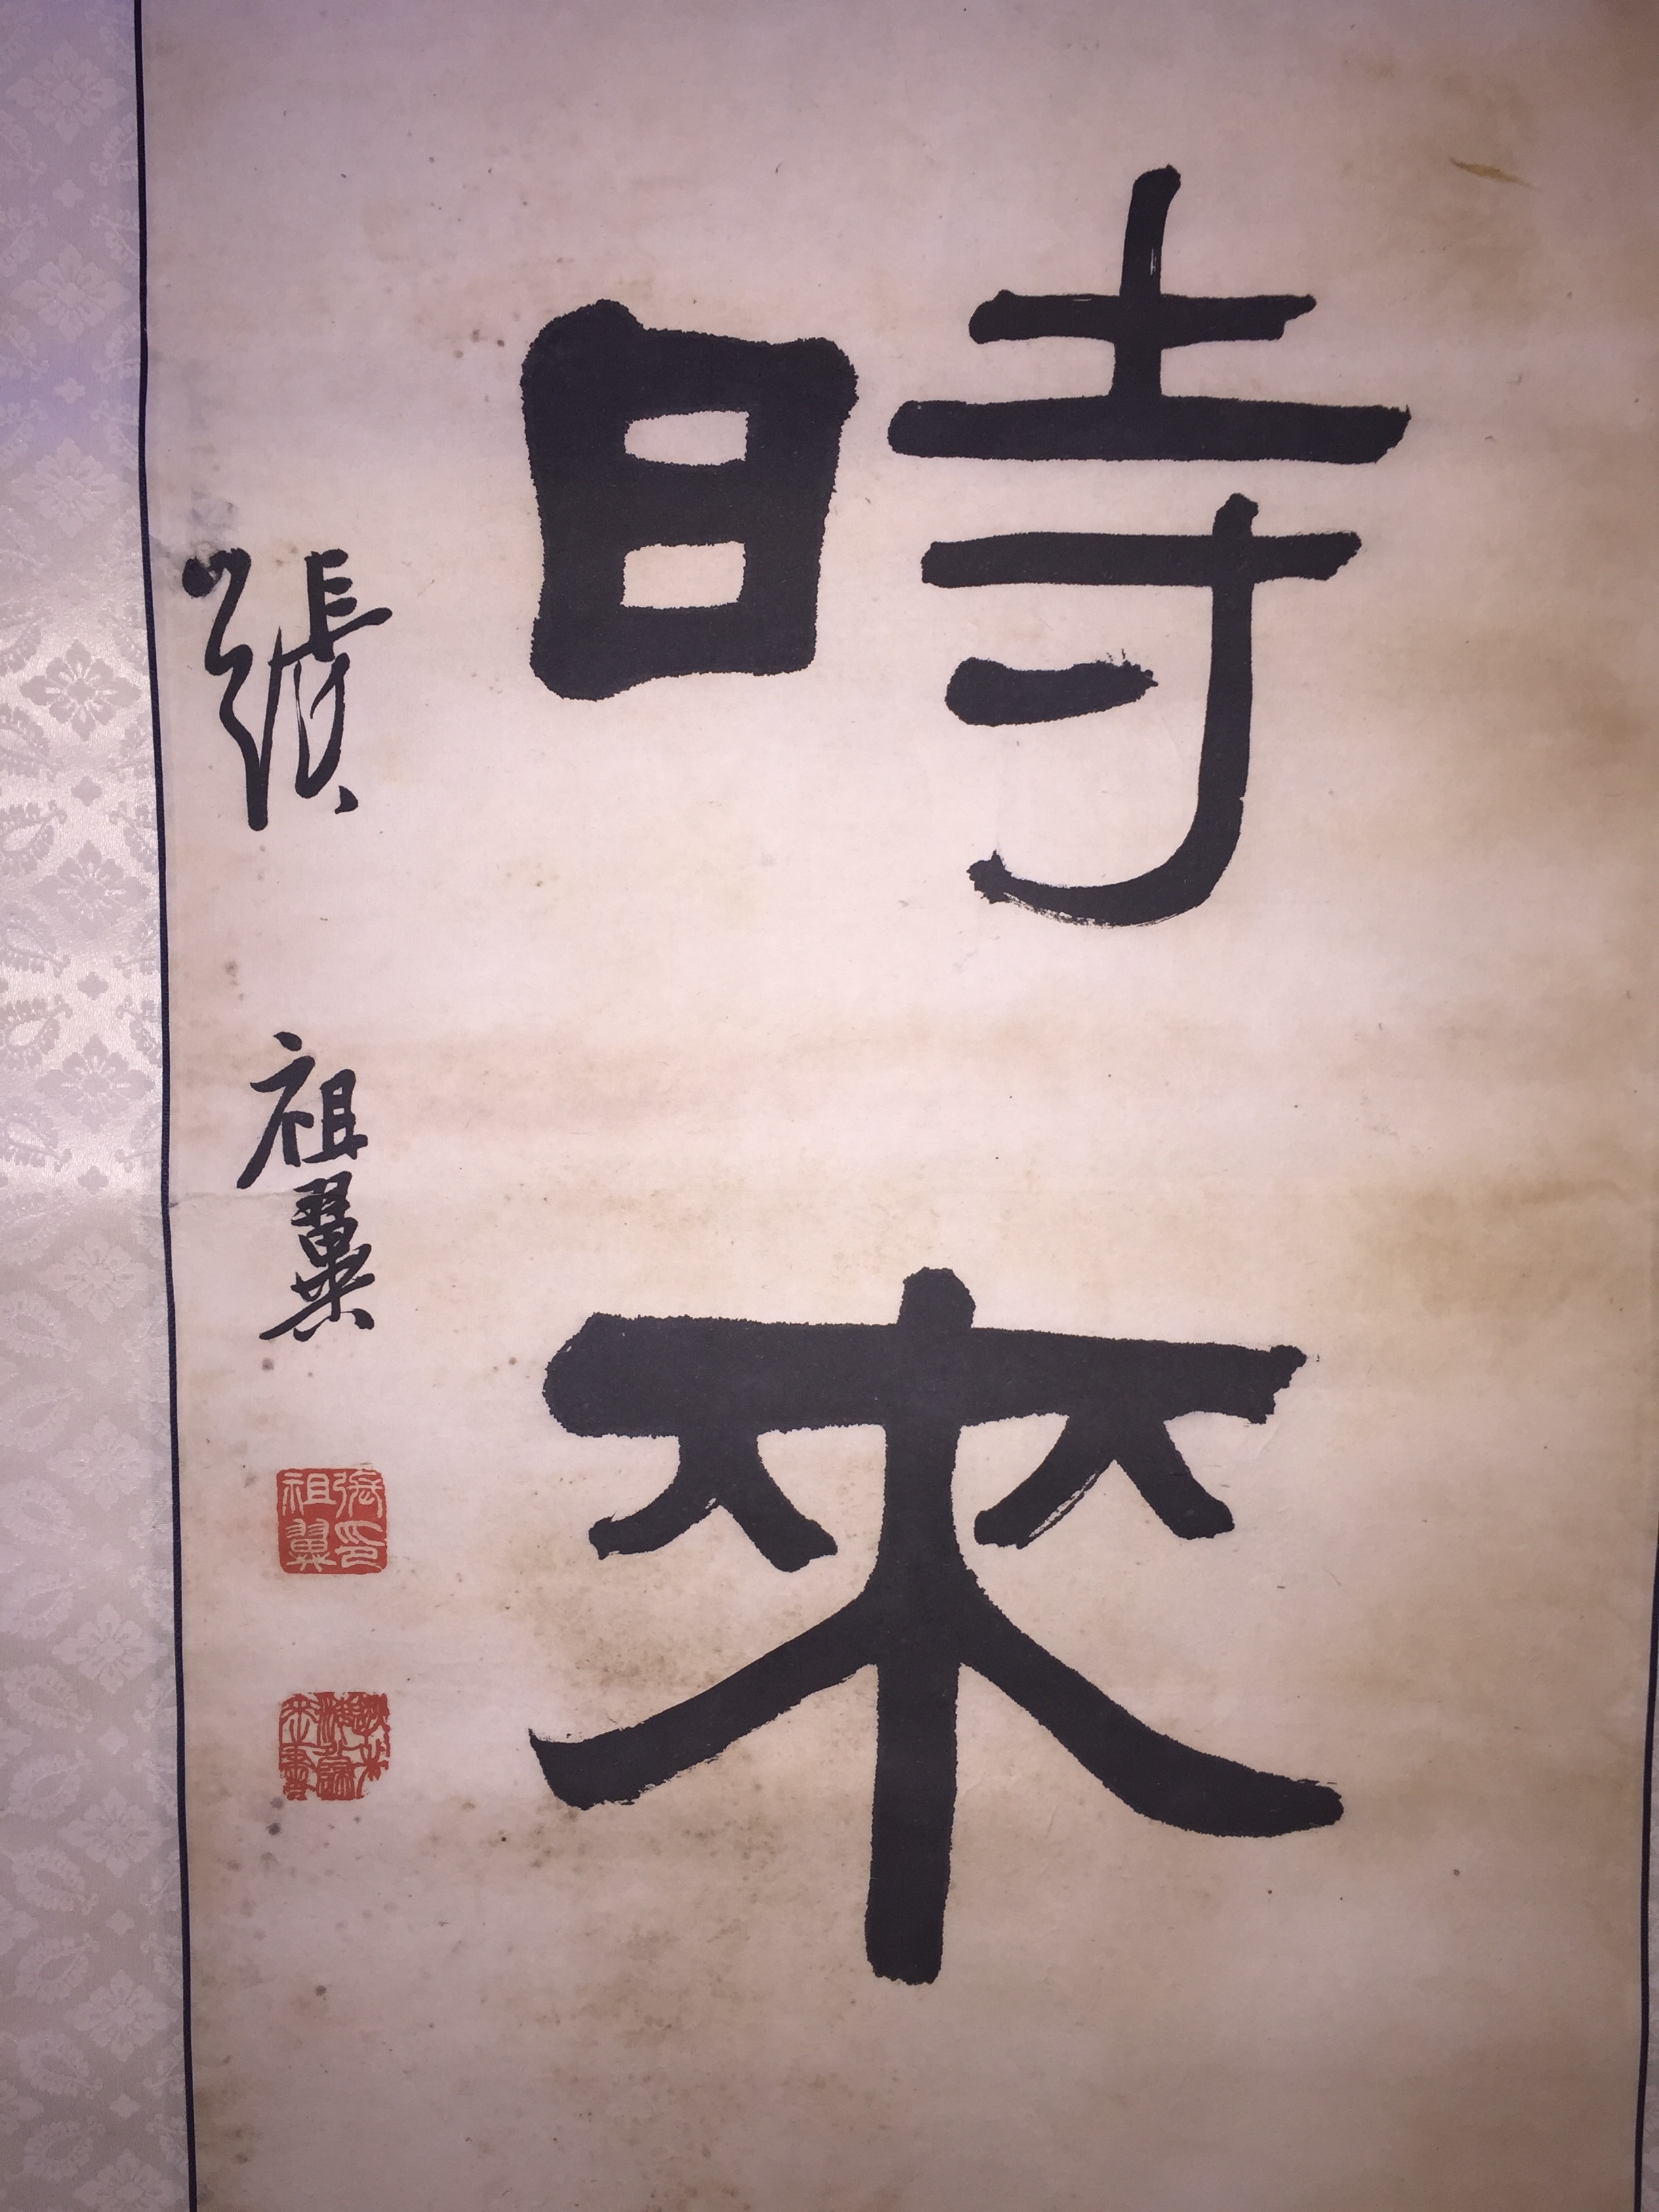 時來
張祖翼
張祖翼印